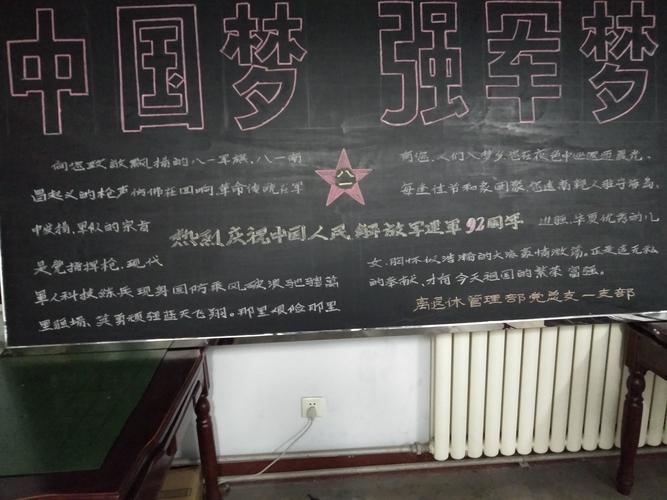 中国梦 强军梦
向您致敬飘扬的八一军旗，八一南
昌起义的枪声仿佛在回响，革命传统在军
中发扬，军队的宗旨
是党指挥枪，现代
军人科技练兵现身国防乘风破浪驰骋万
里疆场，英勇顽强蓝天飞翔。那里艰险那里
八一
热烈庆祝中国人民解放军建军92周年
有您，人们入梦乡您在夜色中巡逻迎晨光，
每逢佳节和家团聚，您远离亲人驻守海岛
边疆，华夏优秀的儿
女，胸怀似浩瀚的大海豪情激荡。正是这无私
的奉献，才有今天祖国的繁荣富强。
离退休管理部党总支一支部